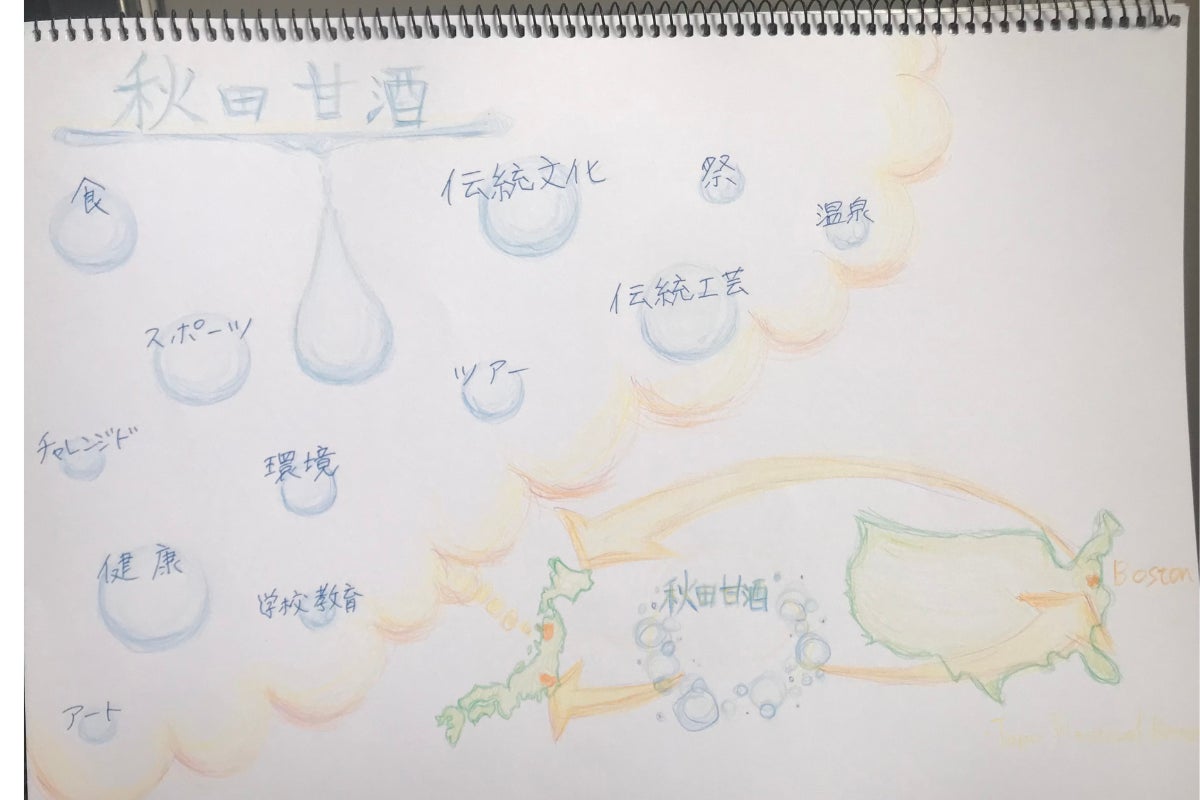 秋田甘酒
食
伝統文化
祭
温泉
伝統工芸
スポーツ
ツアー
チャレンジド
環境
健康
学校教育
アート
秋田甘酒
Boston